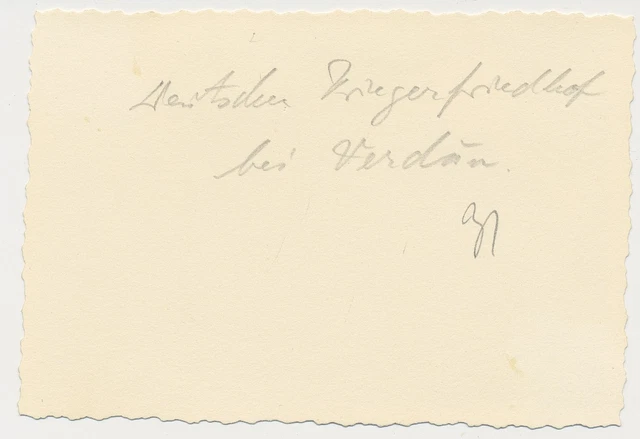 Deutscher Kriegerfriedhof
bei Verdun.